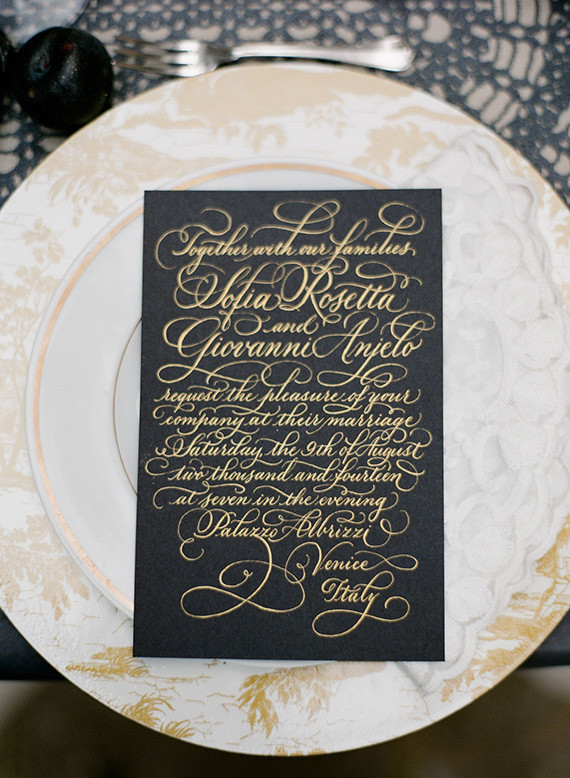 Together with our families
Sofia Rosetta
and
Giovanni Anjelo
request the pleasure of your
company at their marriage
Saturday, the 9th of August
two thousand and fourteen
at seven in the evening
Palazzo Albrizzi
Venice
Italy